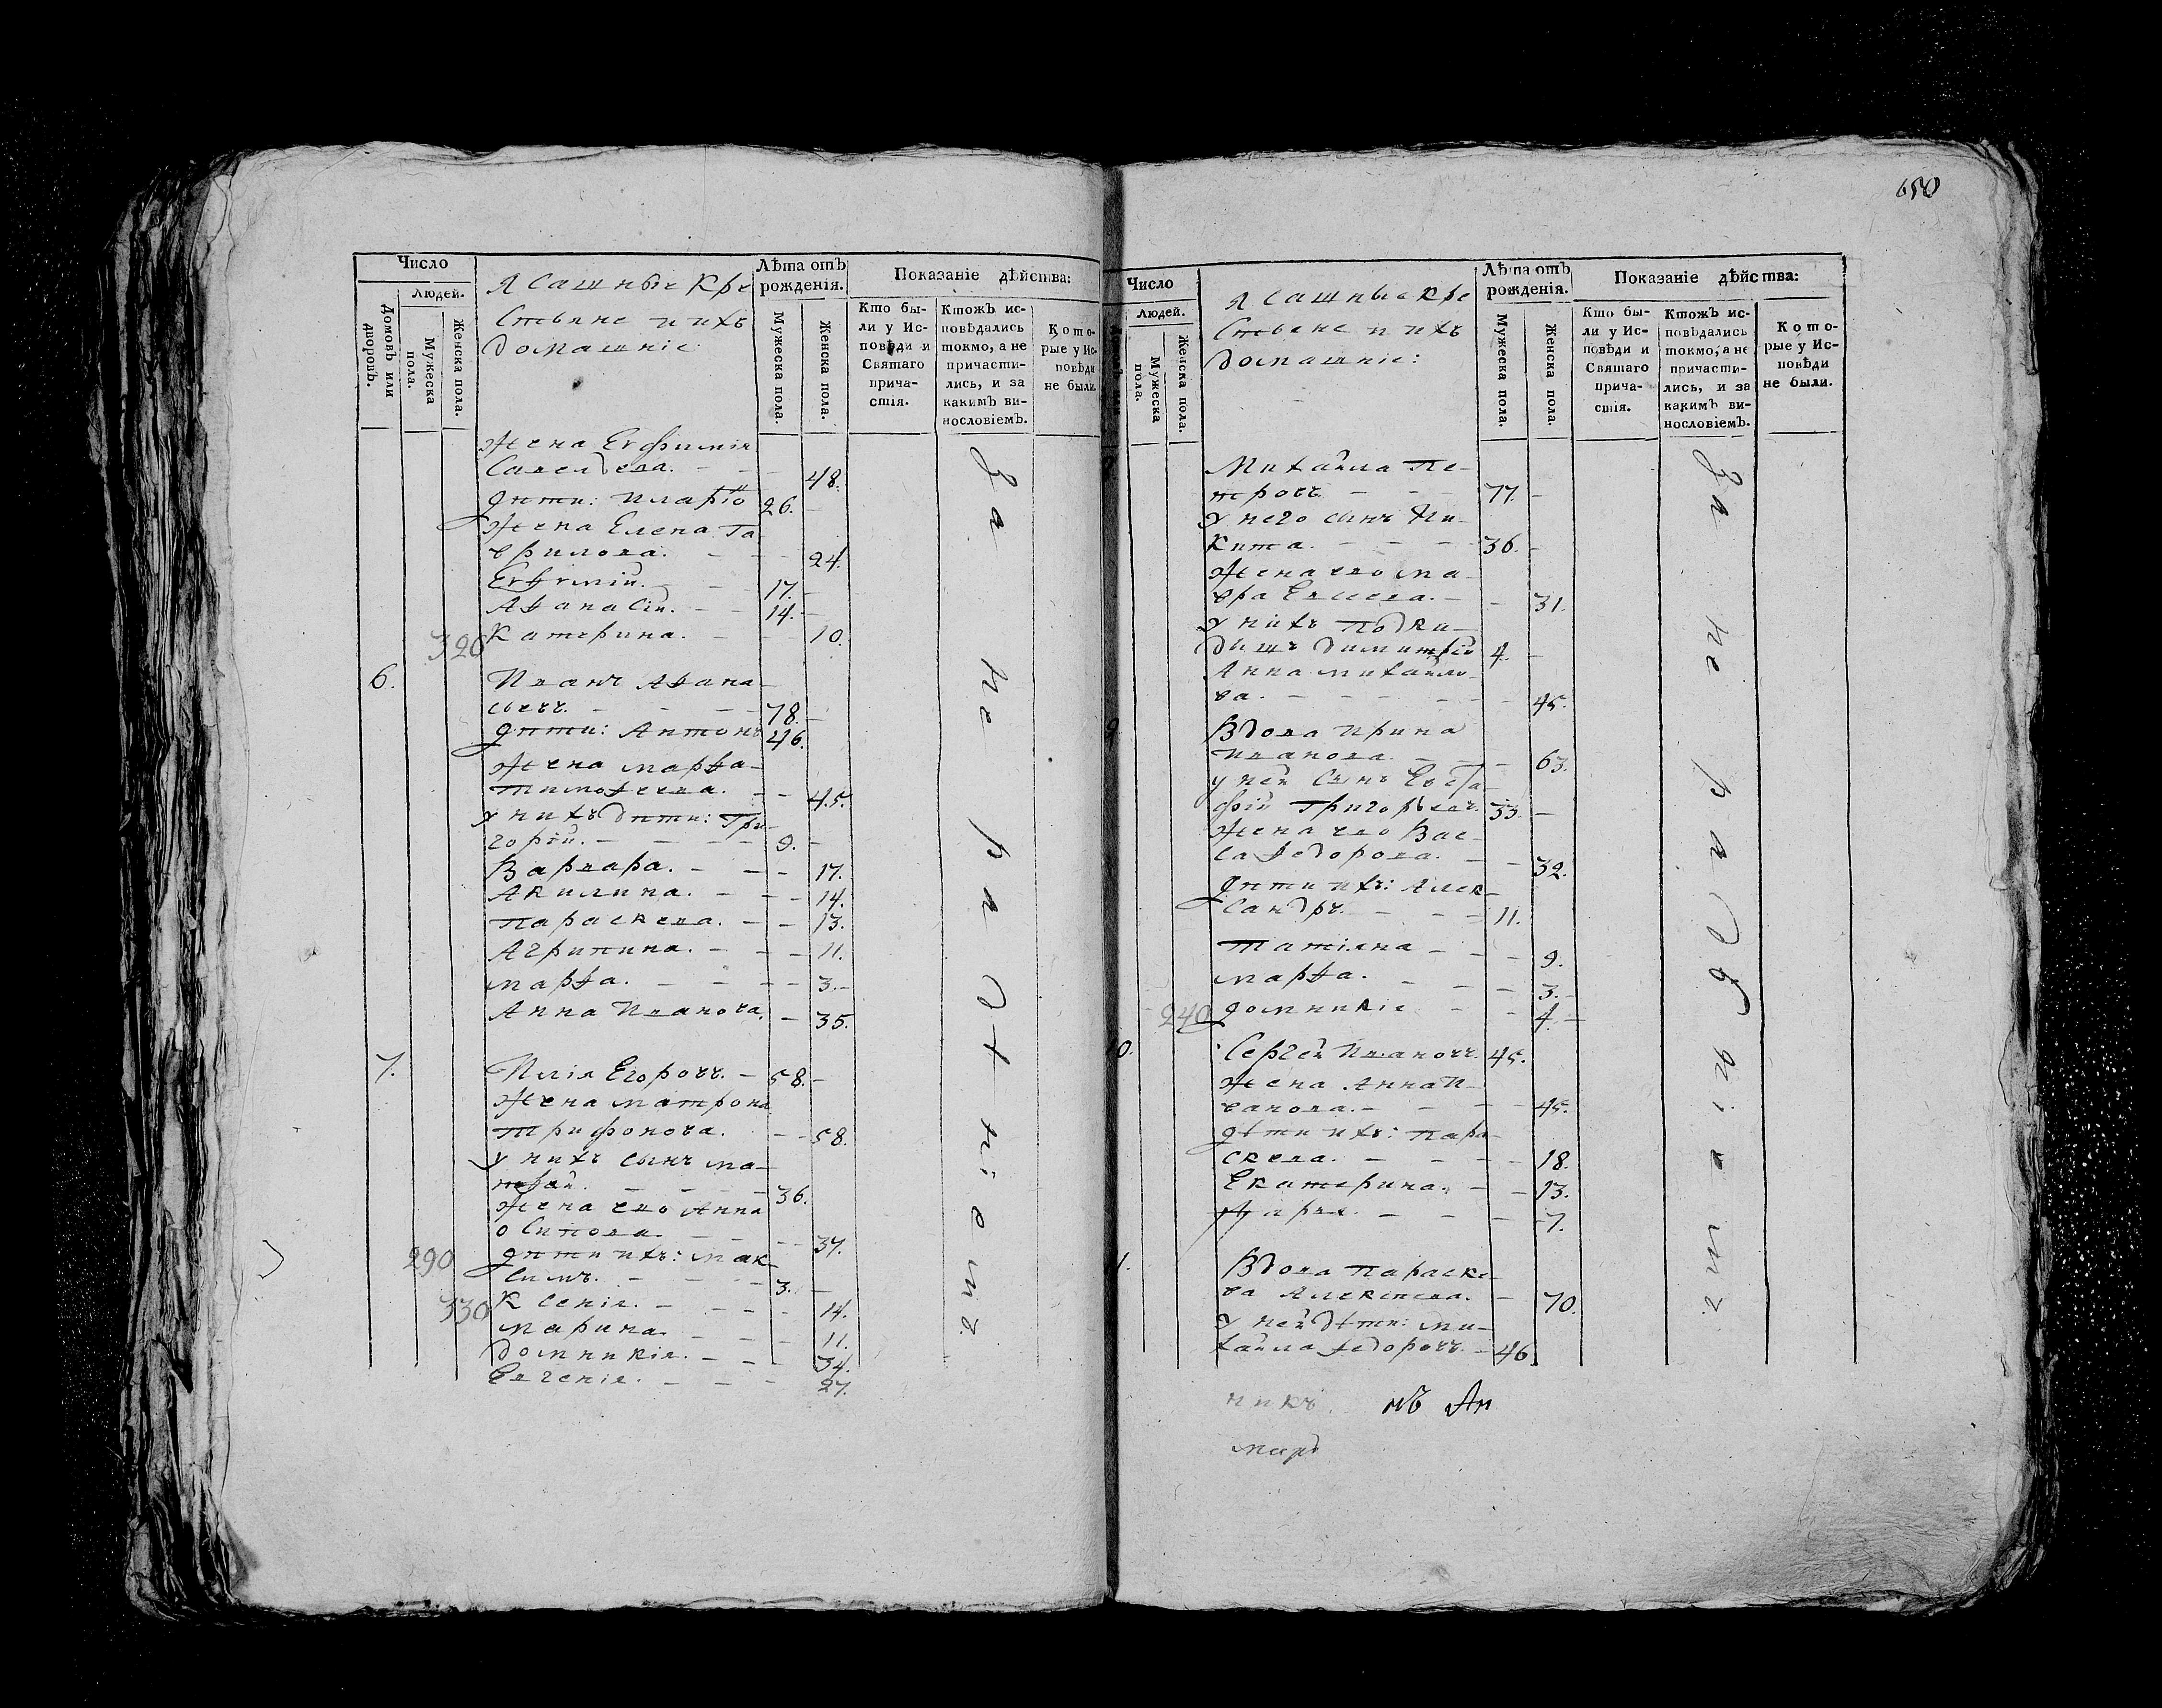 650
Число
Людей.
Домовъ или дворовъ.
Мужеска пола.
Женска пола.
Ясашные кре
стьяне и ихъ
домашніе:
Лѣта отъ рожденія.
Мужеска пола.
Женска пола.
Показаніе дѣйства:
Кто бы-
ли у Ис-
повѣди и
Святаго
прича-
стія.
Ктожъ ис-
повѣдались
токмо, а не
причасти-
лись, и за
какимъ ви-
нословіемъ.
Кото-
рые у Ис-
повѣди
не были.
жена Евфимія
Савельева. 48.
дѣти: Иларіо 26.
жена Елена Га
врилова. 24.
Евфимій. 17.
Афанасій. 14.
320 Катерина. 10.
6. Иванъ Афана-
сьевъ. 78.
дѣти: Антонъ 46.
жена Марфа
Тимофеева. 45.
у нихъ дѣти: Гри-
горій. 9.
Варвара. 17.
Акилина. 14.
Параскева. 13.
Агрипина. 11.
Марфа. 3.
Анна Иванова. 35.
7. Илія Егоровъ. 58.
жена Матрона
Трифонова. 58.
у нихъ сынъ Ма-
тфей. 36.
жена ево Анна
Осипова. 37.
290 дѣти ихъ: Мак-
симъ. 3.
330 Ксенія. 14.
Марина. 11.
Домникія. 34.
Евгенія. 27.
За не радѣніемъ
Число
Людей.
Мужеска пола.
Женска пола.
Ясашные кре
стьяне и ихъ
домашніе:
Лѣта отъ рожденія.
Мужеска пола.
Женска пола.
Показаніе дѣйства:
Кто бы-
ли у Ис-
повѣди и
Святаго
прича-
стія.
Ктожъ ис-
повѣдались
токмо, а не
причасти-
лись, и за
какимъ ви-
нословіемъ.
Кото-
рые у Ис-
повѣди
не были.
Михайла Пе-
тровъ. 77.
у него сынъ Ни-
кита. 36.
жена ево Ма-
вра Елисева. 31.
у нихъ подки-
дышъ Димитрій 4.
Анна Михайло-
ва. 45.
9. Вдова Ирина
Иванова. 63.
у ней сынъ Евста-
фій Григорьевъ. 33.
жена ево Вас-
са Федорова. 32.
дѣти ихъ: Алек-
сандръ. 11.
Татіяна 9.
Марфа. 3.
240 Домникіе 4.
10. Сергей Ивановъ. 45.
жена Анна И-
ванова. 45.
дѣти ихъ: Пара-
скева. 18.
Екатерина. 13.
Марья. 7.
1. Вдова Параске-
ва Алексеева. 70.
у ней дѣти: Ми-
хайла Федоровъ. 46
За не радѣніемъ
никъ